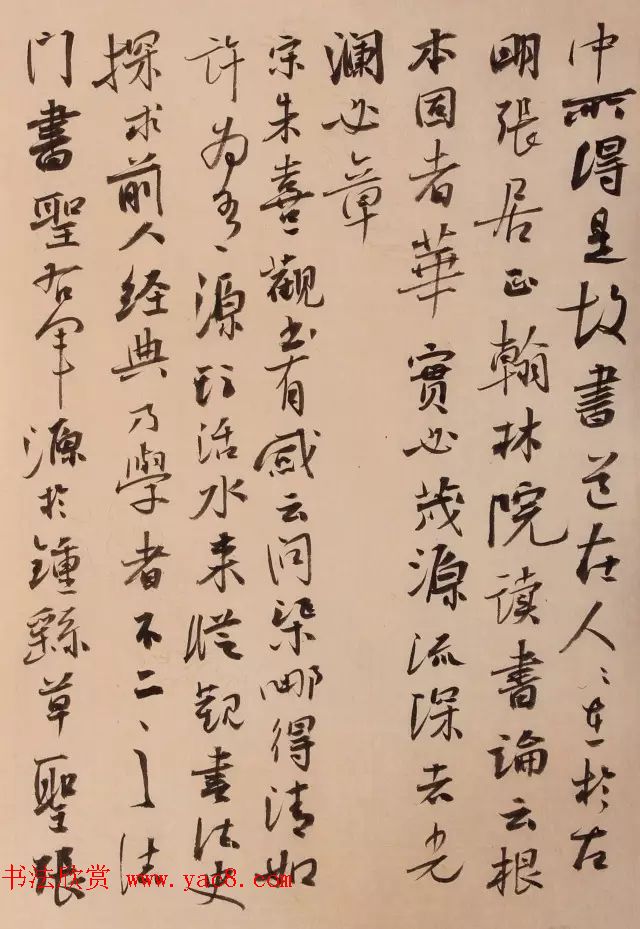 中所得是故書道在人人在於古
明張居正翰林院读書論云根
本固者華實必茂源流深者光
瀾必章
宗朱熹觀书有感云问渠哪得清如
许为有源頭活水来縱觀書法史
探求前人经典乃學者不二之法
门書聖右軍源於鍾繇草聖張
书法欣赏 www.yac8.com